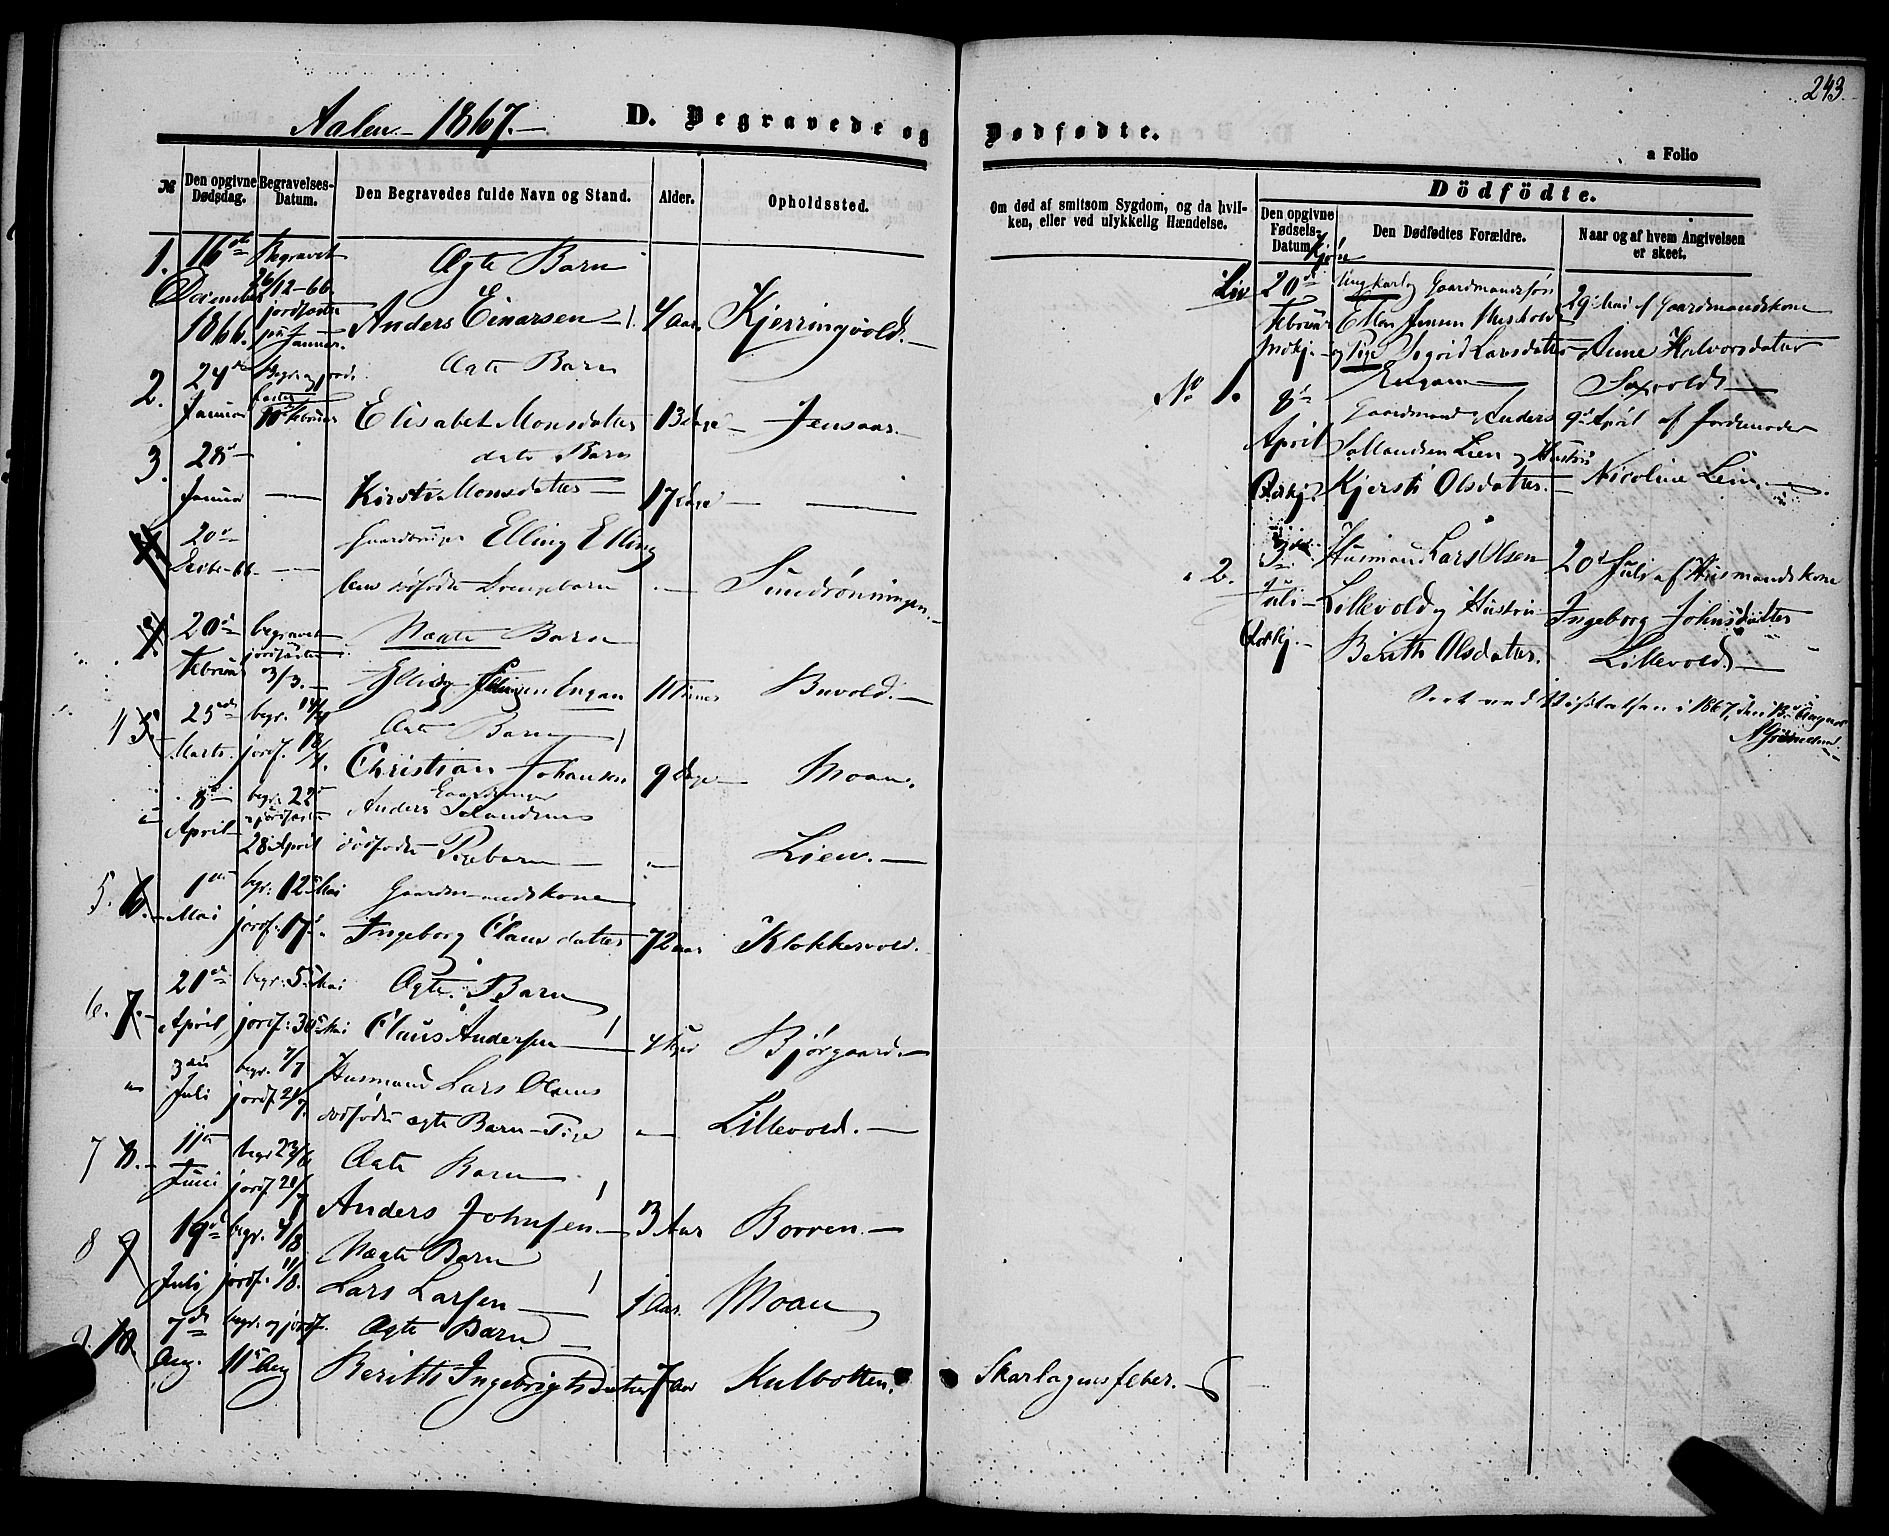 243.
Aalen - 1867. -
D. Begravede og Dødfødte.
a Folio
№
Den opgivne Dødsdag.
Begravelses-Datum.
Den Begravedes fulde Navn og Stand.
Alder.
Opholdssted.
Om død af smitsom Sygdom, og da hvilken, eller ved ulykkelig Hændelse.
Dödfödte.
Den opgivne Fødsels-Datum
Den Dødfødtes Forældre.
Naar og af hvem Angivelsen er skeet.
1. 16de Begravet Ægte Barn
December 26/12-66.
1866. jordfæstet Anders Einarsen 4 aar Kjerringvold. -
Januar.
2. 24de Ægte Barn
Januar 10 Februar Elisabet Monsdatter 13 Dage - Jensaas. -
3. 28de - dete Barn
Januar — Kirsti Monsdatter — 17 Dage - —
20de Gaardbruger Elling Elling
Decbr-66. — sens dødfødte Drengebarn - Sundrønningen. -
20de begravet Uægte Barn
Februar jordfæstet 3/3. - Engan 11 Timer Buvold. -
4 5. 25de begr. 14/4 Ægte Barn
Marts. jordf. 18/4. Christian Johansen 9 Dage - Moan.
8de begr. 22 Gaardbruger
April - jordfæstet Anders
28 April dødfødte Pigebarn — - Lien. -
5. 6. - 1ste begr. 12 Mai Gaardmandskone
Mai jordf. 17de. Ingeborg Clausdatter 72 aar Klokkervold.
6. 7. - 21de begr. 5 Mai Ægte Barn
April jordf. 30 Mai Claus Andersen — Bjørgaard. -
" 3die begr. 7/7 Husmand Lars Olsens
Juli jordf. 21/7. dødfødte ægte Barn - Pige - Lillevold. -
7 8. - 11te begr 23/6 Ægte Barn
Juni jordf. 21/7 Anders Johnsen - 3 Aar Borren. -
8 9 19de begr. 4/8 Uægte Barn
Juli jordf. 11/8. Lars Larsen — 1 Aar. Moan
9. 10. 7de begr. og jordf. Ægte Barn
Aug. 11 Aug Berith Ingebrigtsdatter 7 Aar Kulbotten. Skarlagensfeber. -
Liv 20de Ungkarl og Gaardmandssøn 29 Mai af Gaardmandskone
Februar Jensen
og Pige Sigrid Larsdatter Anne Halvorsdatter
Engan —
No 1. 8de Gaardmand Anders 9de April af Jordemoder
April Lien og Hustru
Kjersti Olsdatter. - Nicoline Lien. -
" 2. 3die Husmand Lars Olsen 20de Juli af Husmandskone
Juli - Lillevold og Hustru Ingeborg Johnsdatter
Berith Olsdatter. Lillevold -
Seet ved Visitatsen i 1867, den 13de August